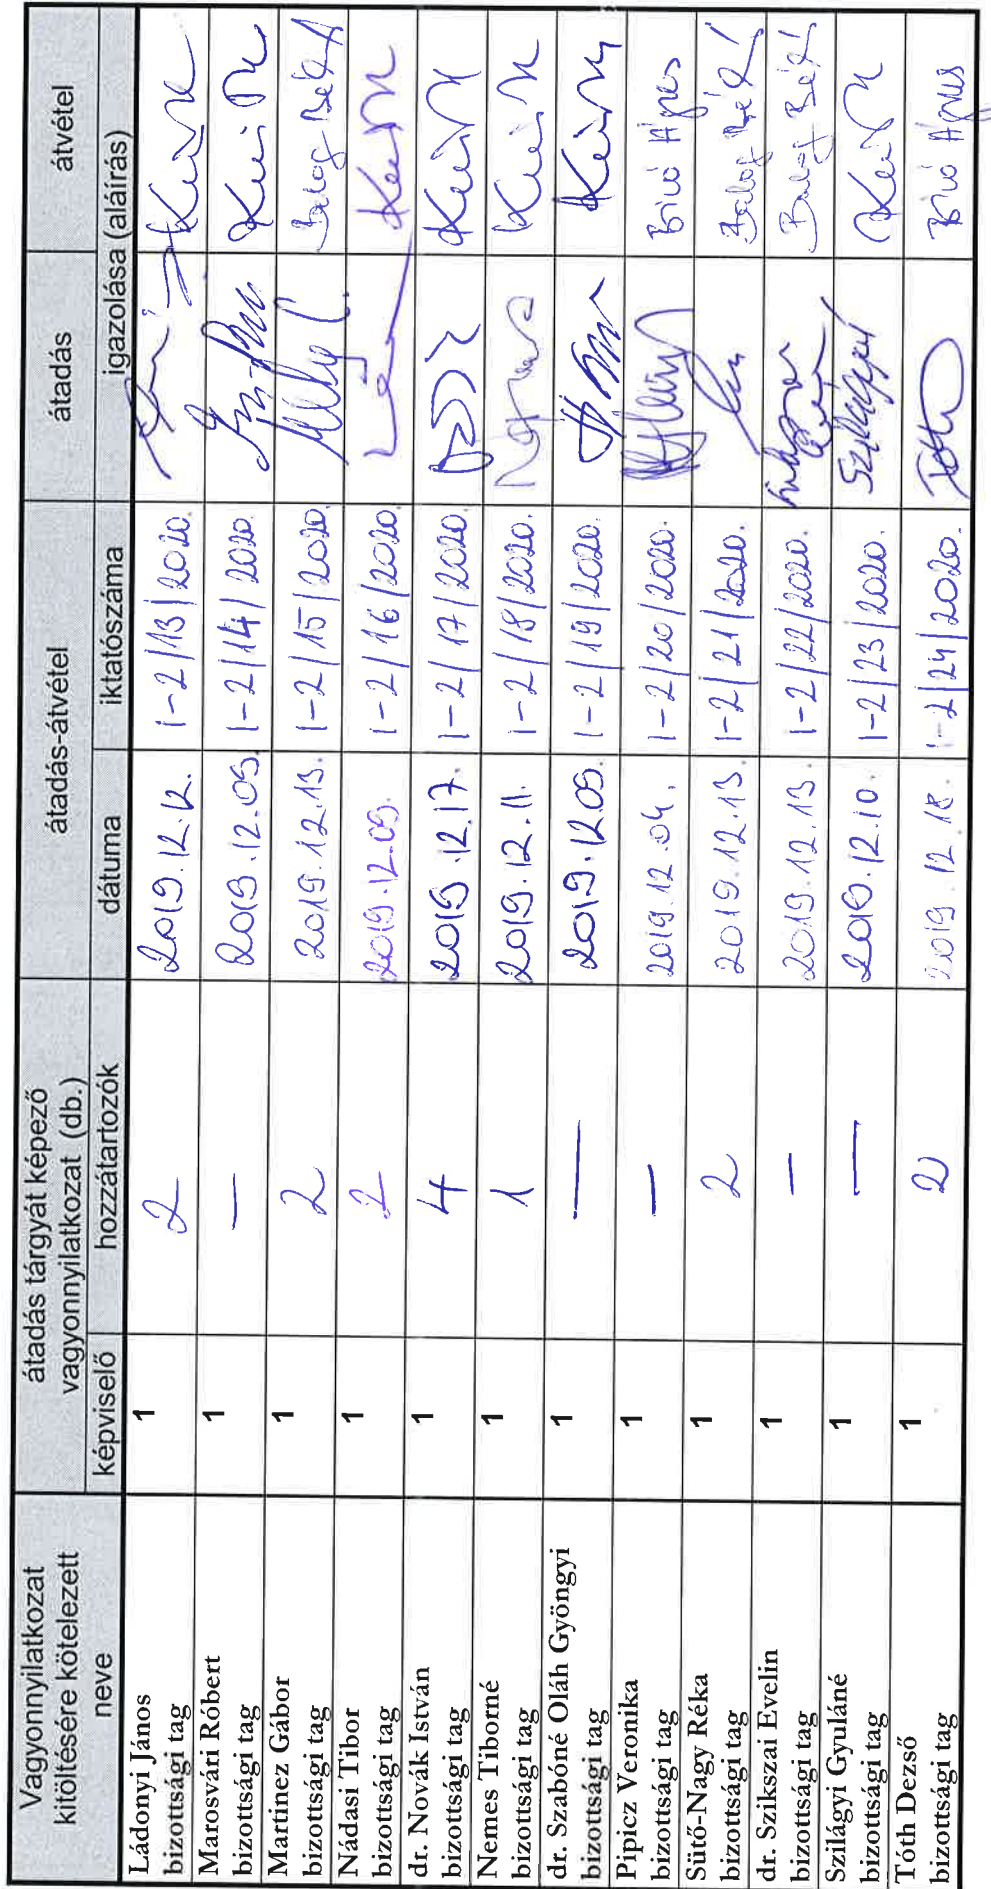 Vagyonnyilatkozat kitöltésére kötelezett neve
átadás tárgyát képező vagyonnyilatkozat (db.)
átadás-átvétel
átadás
átvétel
képviselő
hozzátartozók
dátuma
iktatószáma
igazolása (aláírás)
Ládonyi János bizottsági tag 1 2 2019.12.12. 1-2/13/2020.
Marosvári Róbert bizottsági tag 1 — 2019.12.09. 1-2/14/2020.
Martinez Gábor bizottsági tag 1 2 2019.12.13. 1-2/15/2020. Balog Béla
Nádasi Tibor bizottsági tag 1 2 2019.12.09. 1-2/16/2020.
dr. Novák István bizottsági tag 1 4 2019.12.17. 1-2/17/2020.
Nemes Tiborné bizottsági tag 1 1 2019.12.11. 1-2/18/2020.
dr. Szabóné Oláh Gyöngyi bizottsági tag 1 — 2019.12.09. 1-2/19/2020.
Pipicz Veronika bizottsági tag 1 — 2019.12.04. 1-2/20/2020. Biró Ágnes
Sütő-Nagy Réka bizottsági tag 1 2 2019.12.13. 1-2/21/2020. Balog Béla
dr. Szikszai Evelin bizottsági tag 1 — 2019.12.13. 1-2/22/2020. Balog Béla
Szilágyi Gyuláné bizottsági tag 1 — 2019.12.10. 1-2/23/2020.
Tóth Dezső bizottsági tag 1 2 2019.12.18. 1-2/24/2020. Tóth Biró Ágnes